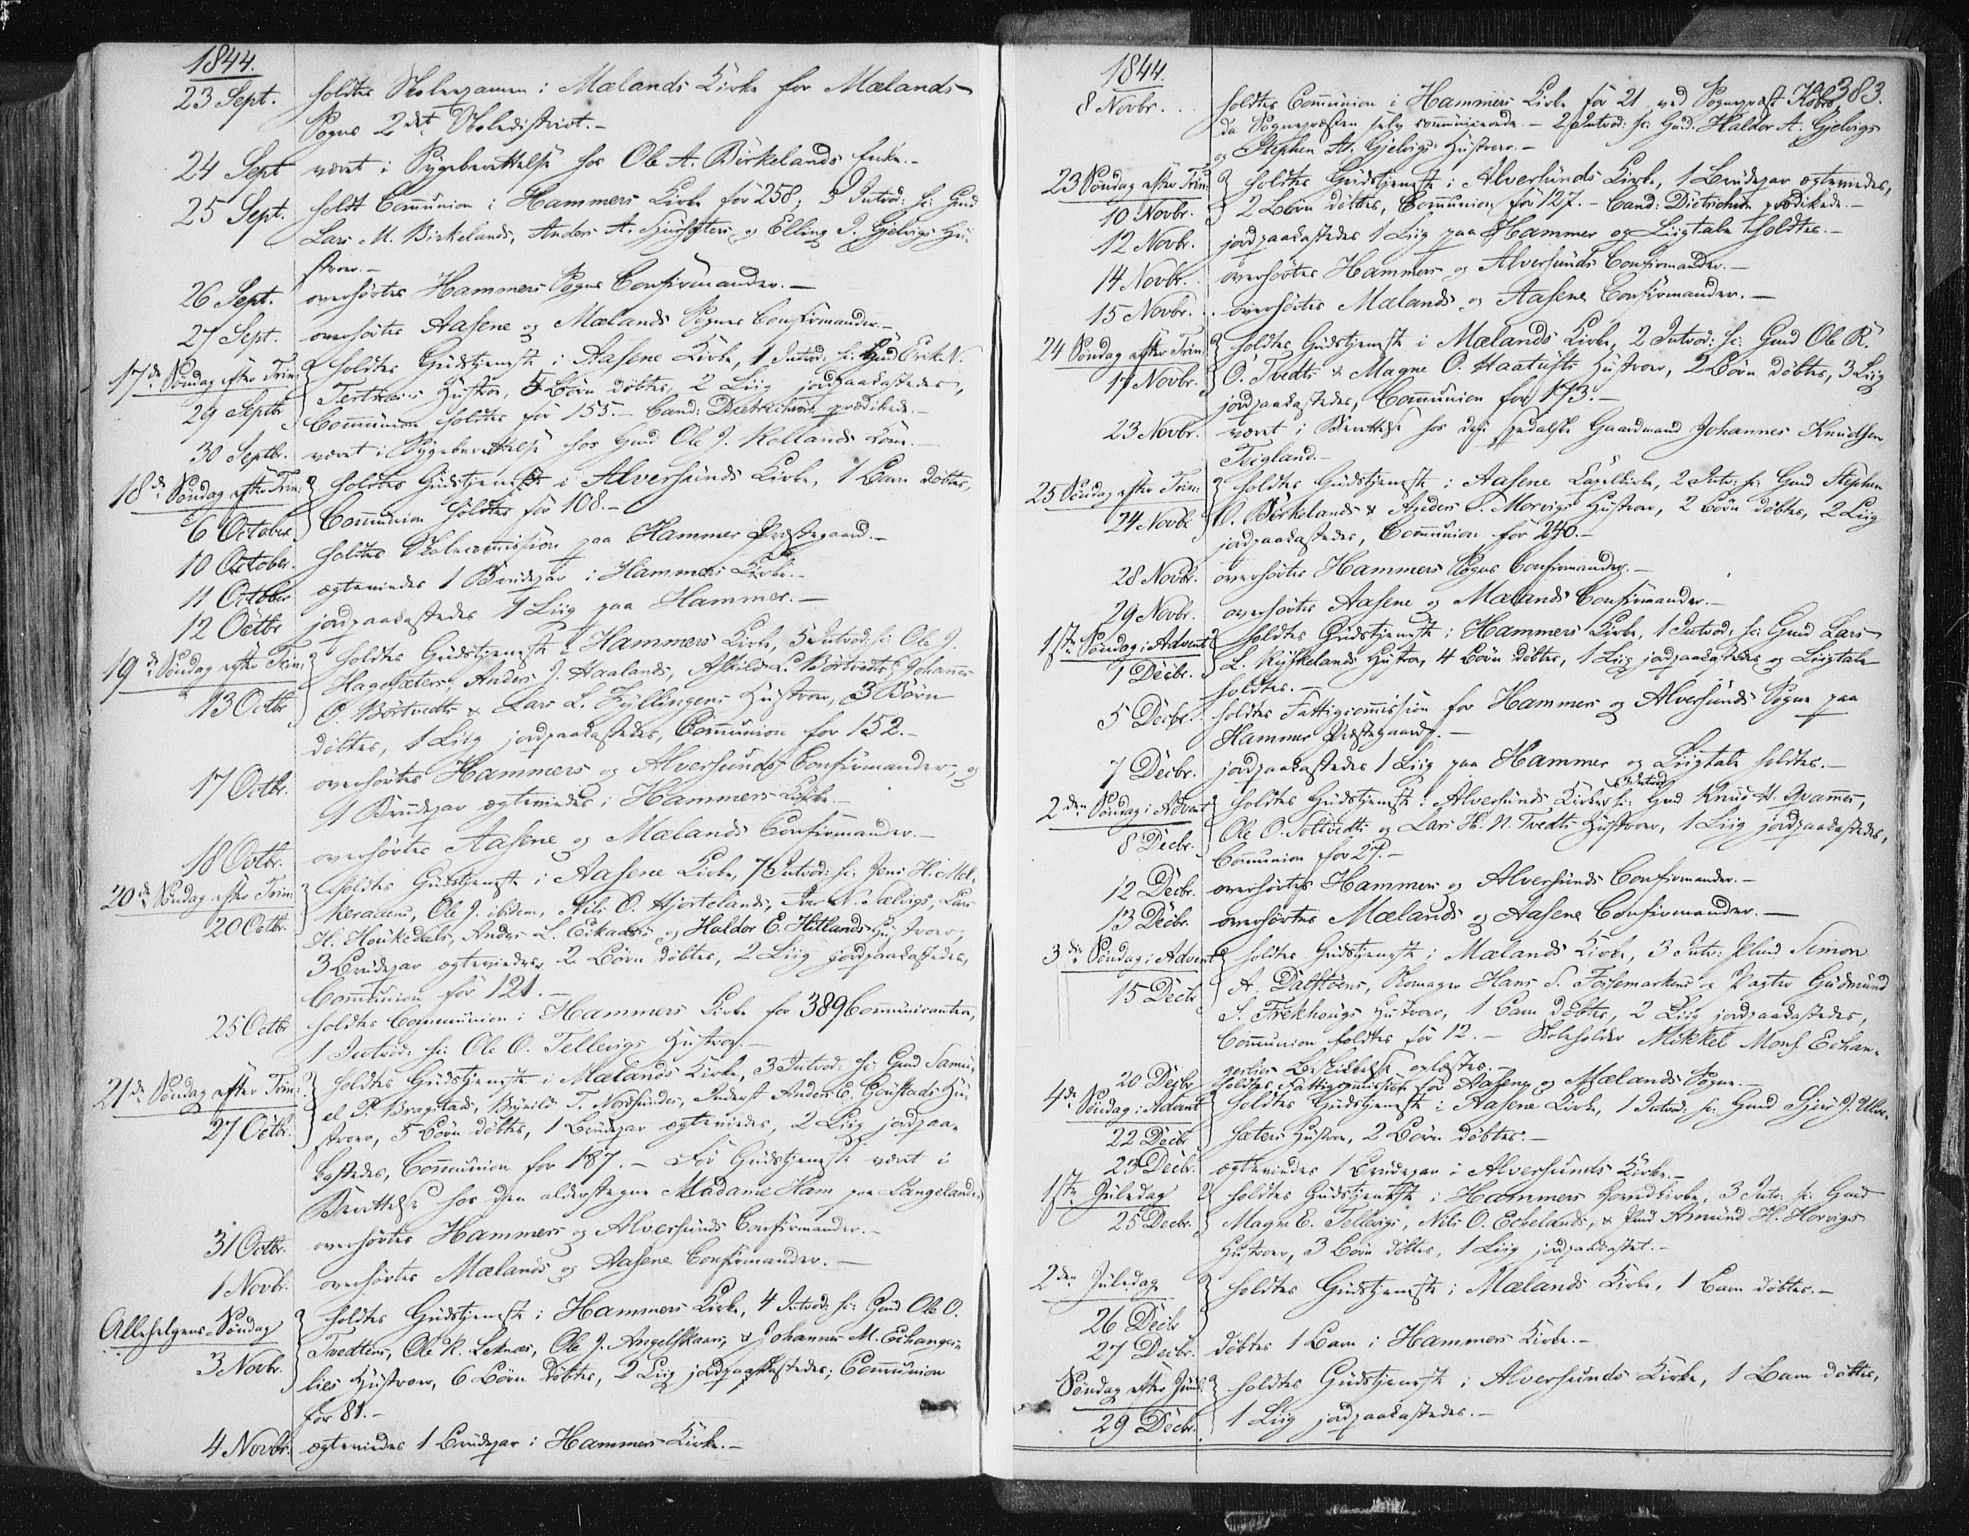 1844.
23 Sept. holdtes Skoleexamen i Mælands Kirke for Mælands
Sogns 2det Skoledistrict.-
24 Sept været i Sygeberettelse hos Ole A. Birkelands Enke.-
25 Sept. holdt Communion i Hammers Kirke för 258; 3 Introd: f: Gmd
Lars M. Birkelands, Anders A. og Elling J. Gjelvigs Hu-
struer.-
26 Sept. overhörtes Hammers Sogns Confirmander.-
27 Sept. overhörtes Aasene og Mælands Sognes Confirmander.-
17de Söndag efter Trin: holdtes Gudstjeneste i Aasene Kirke, 1 Introd: f: Gmd Erik N.
29 Septbr Hustru, 5 Börn döbtes, 2 Liig jordpaakastedes,
Communion holdtes för 155.- Cand: Dietrichson prædikede.-
30 Septbr. været i Sygeberettelse hos Gmd Ole J. Rollands Kone.-
18de Söndag efter Trin: holdtes Gudstjeneste i Alversunds Kirke, 1 Barn döbtes,
6 October Communion holdtes för 108.-
10 October. holdtes Skolecommission paa Hammer Præstegaard.-
11 October ægteviedes 1 Brudepar i Hammers Kirke.-
12 Octbr jordpaakastedes 1 Liig paa Hammer.-
19de Söndag efter Trin: holdtes Gudstjeneste i Hammers Kirke, 5 Introd: f: Ole J.
13 Octbr Hagesæters, Anders J. Haalands, Johannes
O. Börtvedts & Lars L. Fyllingens Hustruer, 3 Börn
döbtes, 1 Liig jordpaakastedes, Communion for 152.-
17 Octbr. overhörtes Hammers og Alversunds Confirmander, og
1 Brudepar ægteviedes i Hammers Kirke.-
18 Octbr. overhörtes Aasene og Mælands Confirmander.-
20de Söndag efter Trin: holdtes Gudstjeneste i Aasene Kirke, 7 Introd: f: Jens H. Mel-
20 Octbr. Ole J. ibidem, Nils O. Hjortelands, N. Lars
H. Houkedals, Anders L. Eikaas og Haldor E. Hitlands Hustruer,
3 Brudepar ægteviedes, 2 Börn döbtes, 2 Liig jordpaakastedes,
Communion för 121.-
25 Octbr holdtes Communion i Hammers Kirke for 389 Communicantere,
1 Introd: f: Ole O. Tellevigs Hustru.-
21de Söndag efter Trin: holdtes Gudstjeneste i Mælands Kirke, 3 Introd: f: Gmd Samu-
27 Octbr. el P. Bragstads, Brynild T. Inderst Anders E. Hu-
struer, 5 Börn döbtes, 1 Brudepar ægteviedes, 2 Liig jordpaa-
kastedes, Communion for 187.- För Gudstjeneste været i
Berettelse hos den alderstegne Madame Ham paa Langeland.
31 Octbr. overhörtes Hammers og Alversunds Confirmander.-
1 Novbr. overhörtes Mælands og Aasene Confirmander.-
Allehelgens-Söndag holdtes Gudstjeneste i Hammers Kirke, 4 Introd: f: Gmd Ole O.
3 Novbr. Tvedtens, Ole K. Leknes, Ole J. Angelskaars, & Johannes M. Echanger-
lies Hustruer, 6 Börn döbtes, 2 Liig jordpaakastedes; Communion
for 81.-
4 Novbr. ægteviedes 1 Brudepar i Hammers Kirke.-
1844.
383.
8 Novbr. holdtes Communion i Hammers Kirke för 21 ved Sognepræst
da Sognepræsten selv communicerede.- 2 Introd: f: Gmd. Haldor A. Gjelvigs
og Stephen Gjelvigs Hustruer.-
23 Söndag efter Trin: holdtes Gudstjeneste i Alversunds Kirke, 1 Brudepar ægteviedes,
10 Novbr. 2 Börn döbtes, Communion för 127.- Cand: Dietrichson prædikede.-
12 Novbr. jordpaakastedes 1 Liig paa Hammer og Liigtale holdtes.-
14 Novbr. overhörtes Hammers og Alversunds Confirmander.-
15 Novbr. overhörtes Mælands og Aasene Confirmander.-
24 Söndag efter Trin: holdtes Gudstjeneste i Mælands Kirke, 2 Introd: f: Gmd Ole R.
17 Novbr. O. Tvedts & Magne O. Haatufts Hustruer, 2 Börn döbtes, 3 Liig
jordpaakastedes, Communion for 173.-
23 Novbr. været i Berettelse hos spedalske Gaardmand Johannes Knudsen
Teigland.-
25 Söndag efter Trin: holdtes Gudstjeneste i Aasene Capelkirke, 2 Introd: f: Gmd Stephen
24 Novbr O. Birkelands & Anders Morvigs Hustruer, 2 Börn döbtes, 2 Liig
jordpaakastedes, Communion for 240.-
28 Novbr. overhörtes Hammers Sogns Confirmander.-
29 Novbr. overhörtes Aasene og Mælands Confirmander.-
1ste Söndag i Advent holdtes Gudstjeneste i Hammers Kirke, 1 Introd: f: Gmd Lars
1 Decbr. L. Hustru, 4 Börn döbtes, 1 Liig jordpaakastedes og Liigtale
holdtes.-
5 Decbr. holdtes Fattigcommission for Hammers og Alversunds Sogne paa
Hammer Præstegaard.-
7 Decbr. jordpaakastedes 1 Liig paa Hammer og Liigtale holdtes.-
2den Söndag i Advent holdtes Gudstjeneste i Alversunds Kirke, 3 Introd: f: Gmd Knud H. Qvammes,
8 Decbr. Ole O. Soltvedts og Lars H. N. Tvedts Hustruer, 1 Liig jordpaakastedes,
Communion for 27.-
12 Decbr. overhörtes Hammers og Alversunds Confirmander.-
13 Decbr. overhörtes Mælands og Aasene Confirmander.-
3die Söndag i Advent holdtes Gudstjeneste i Mælands Kirke, 3 Introd: Simon
15 Decbr A. Dalstöens, Skomager Hans S. Fossemarkens og Pagter Gudmund
S. Frekhougs Hustruer, 1 Barn döbtes, 2 Liig jordpaakastedes,
Communion holdtes för 12.- Skoleholder Mikkel Mons. Echan-
gerlies Beskikkelse oplæstes.-
20 Decbr holdtes Fattigcommission for Aasene og Mælands Sogne.-
4de Söndag i Advent holdtes Gudstjeneste i Aasene Kirke, 1 Introd: f: Gmd J.
22 Decbr sæters Hustru, 2 Börn döbtes.-
23 Decbr. ægteviedes 1 Brudepar i Alversunds Kirke.-
1ste Juledag holdtes Gudstjeneste i Hammers Hovedkirke, 3 Introd: f: Gmd
25 Decbr. Magne E. Tellevigs, Nils O. Echelands, & Amund H. Horvigs
Hustruer, 3 Börn döbtes, 1 Liig jordpaakastet.-
2den Juledag holdtes Gudstjeneste i Mælands Kirke, 1 Barn döbtes.-
26 Decbr
27 Decbr. döbtes 1 Barn i Hammers Kirke.-
Söndag efter Juul holdtes Gudstjeneste i Alversunds Kirke, 1 Barn döbtes,
29 Decbr. 1 Liig jordpaakastedes.-